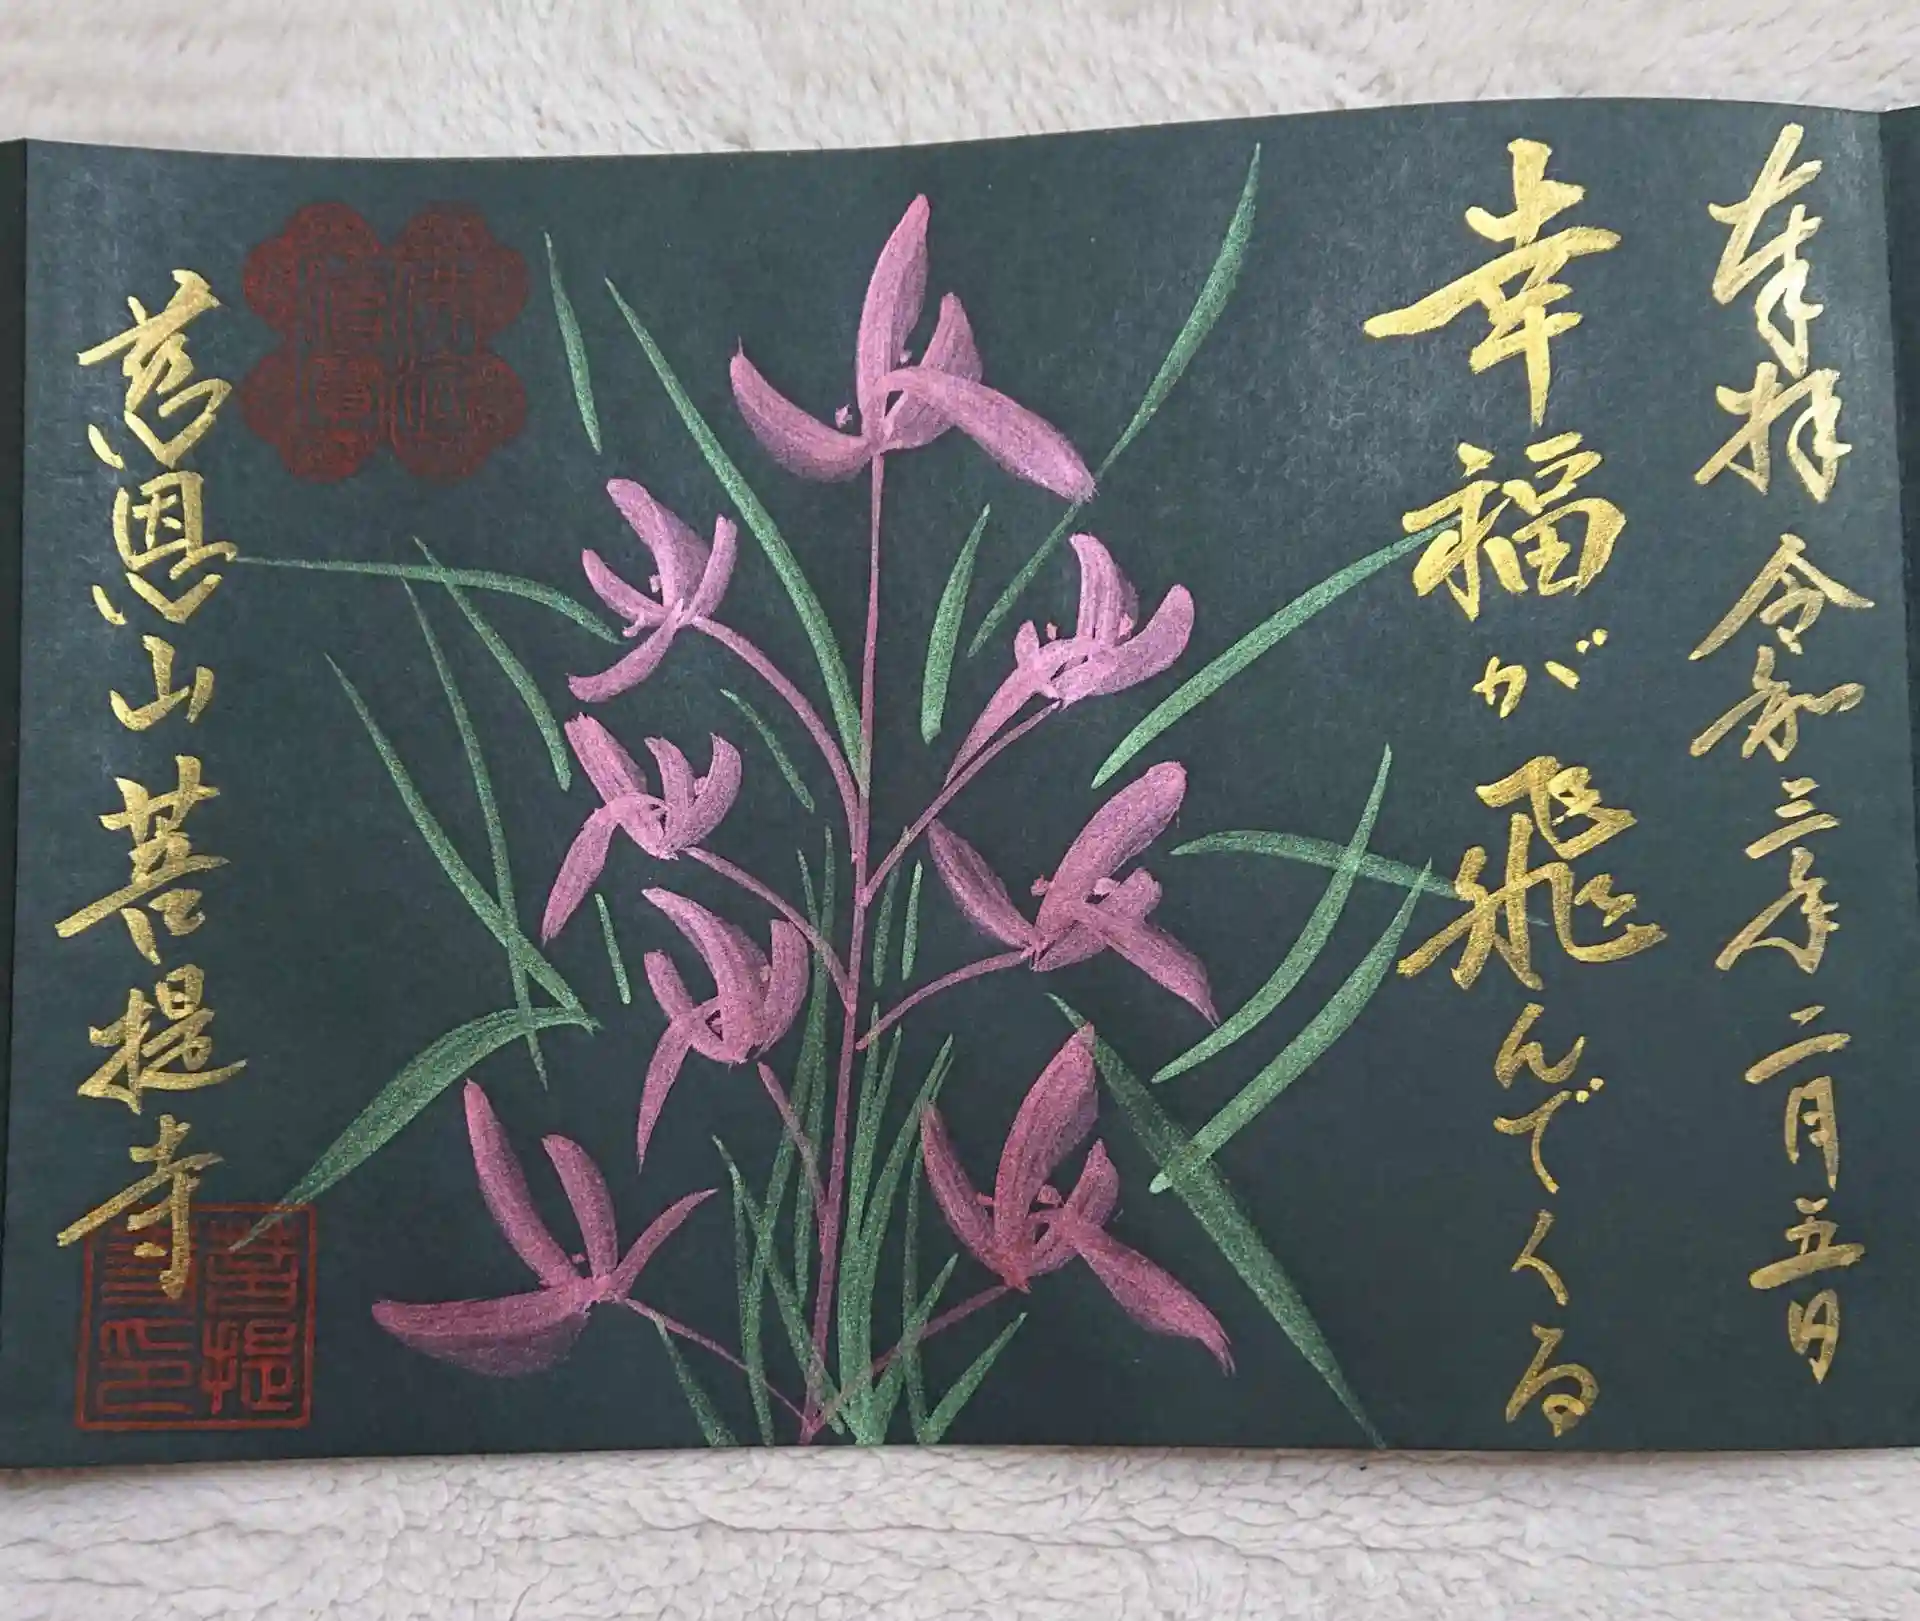 奉拝 令和三年二月五日
幸福が飛んでくる
慈恩山 菩提寺
佛法僧寶
菩提寺印